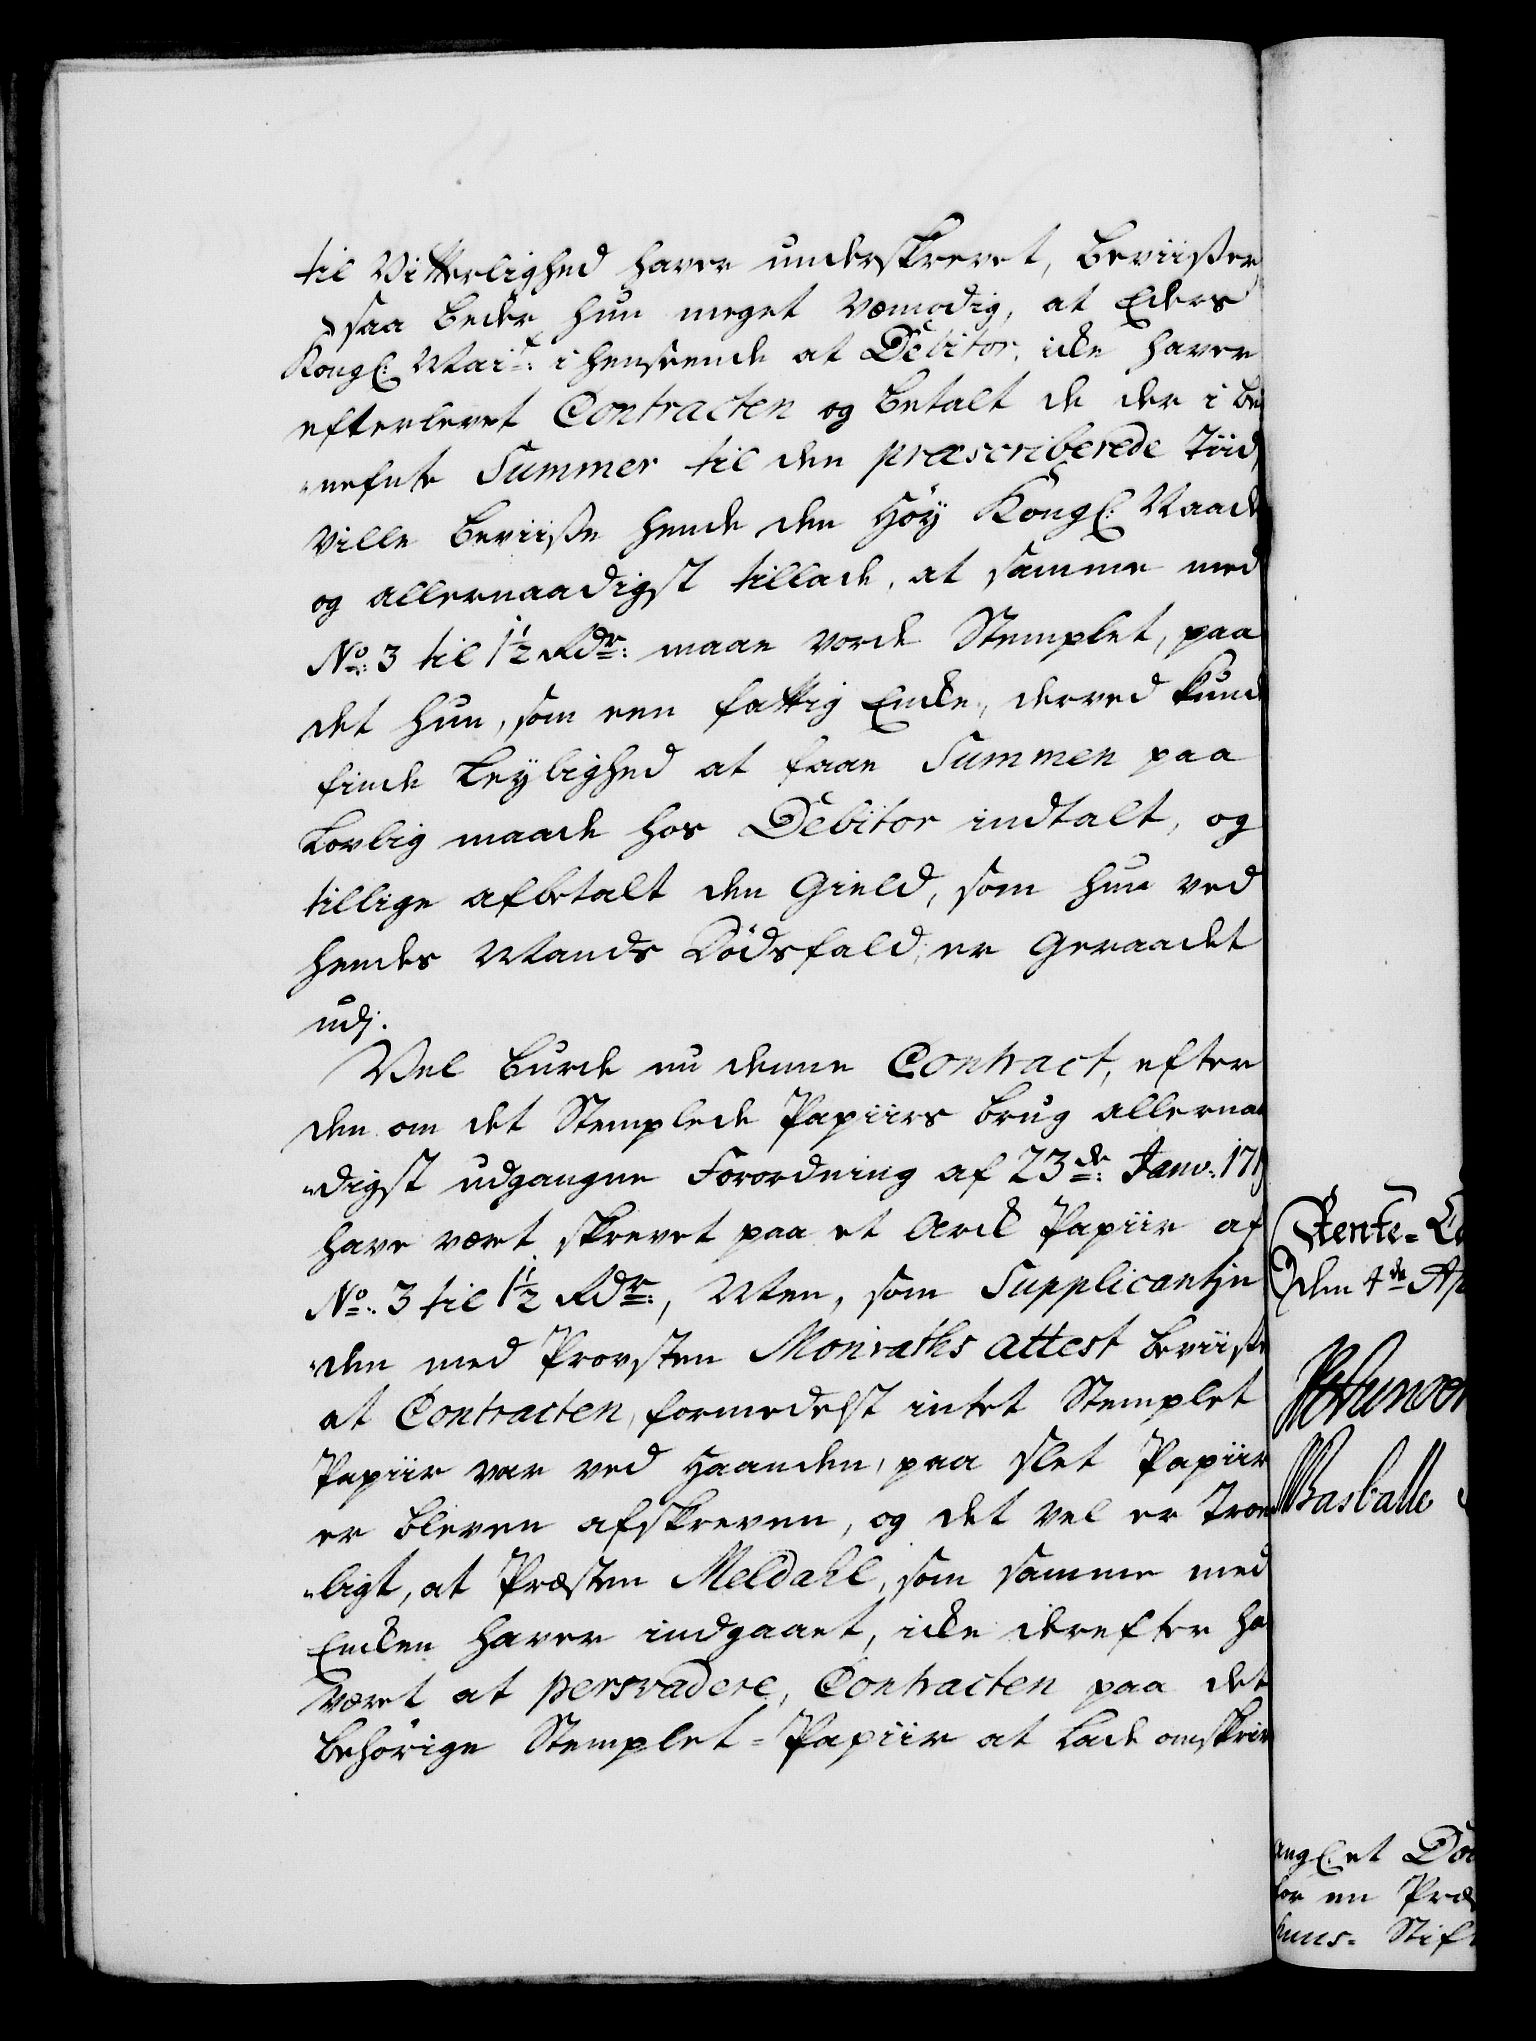 til Vitterlighed haver underskrevet, beviißer,
saa beder hun meget vemodig, at Eders
Kongl: Mai:t i henseende at Debitor, icke haver
efterlevet Contracten og betalt de der i be
„nefnte Summer til den præscriberede Tiid,
ville beviiße hende den Höÿ Kongl: Naade
og allernaadigst tillade, at samme med
No: 3 til 1½ Rdr: maae vorde Stemplet, paa
det hun, som een fattig Encke, derved kunde
finde Leÿlighed at faae Summen paa
Lovlig maade hos Debitor indtalt, og
tillige afbetalt den Gield, som hun ved
hendes Mands Dödsfald, er Geraadet
udj.
Vel burde nu denne Contract, efter
den om det Stemplede Papiirs brug allernaa
„digst udgangne Forordning af 23de: Janv: 171
have været skrevet paa et Arck Papiir af
No: 3 til 1½ Rdr:, Men, som Supplicantin
„den med Provsten Monraths attest beviiße
at Contracten, formedelst intet Stemplet
Papiir var ved Haanden, paa slet Papiir
er bleven afskreven, og det vel er Troe
„ligt, at Præsten Meldahl, som samme med
Encken haver indgaaet, icke derefter ha
været at persvadere, Contracten paa det
behörige Stemplet-Papiir at lade omskriv
Rente-Ca
den 4de Ap
Basballe
angl. et Do
for en Præ
huus- Stif